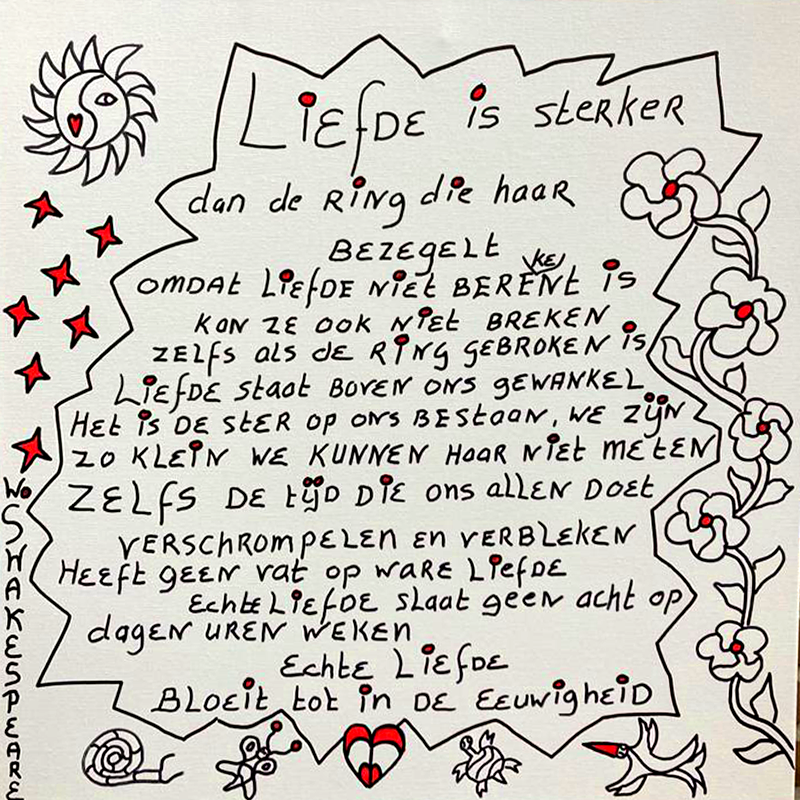 LiEfDE is steRKER
dan de RiNg die haaR
BEZEgELt
OMDAt LiEfDE Niet BERE(KE)Nt is
KON ZE OOK Niet BREKEN
ZELfS als de RiNg gEBROKEN is
LiEfDE staat BOVEN ONS gEWANKEL
HEt is DE StER OP ONS BEStaaN, WE Zijn
ZO KLEiN WE KUNNEN HaaR NiEt METEN
ZELfS DE tijD DiE ONS aLLEN DOEt
VERSChROMPELEN EN VERBLEKEN
HEEft gEEN vat OP WARE LiEfDE
EchtE LiEfDE slaat gEEN acht op
dagEN UREN WEKEN
Echte LiEfDE
BLOEit tot in DE EEUWighEiD
Wo SHAKESPEARE